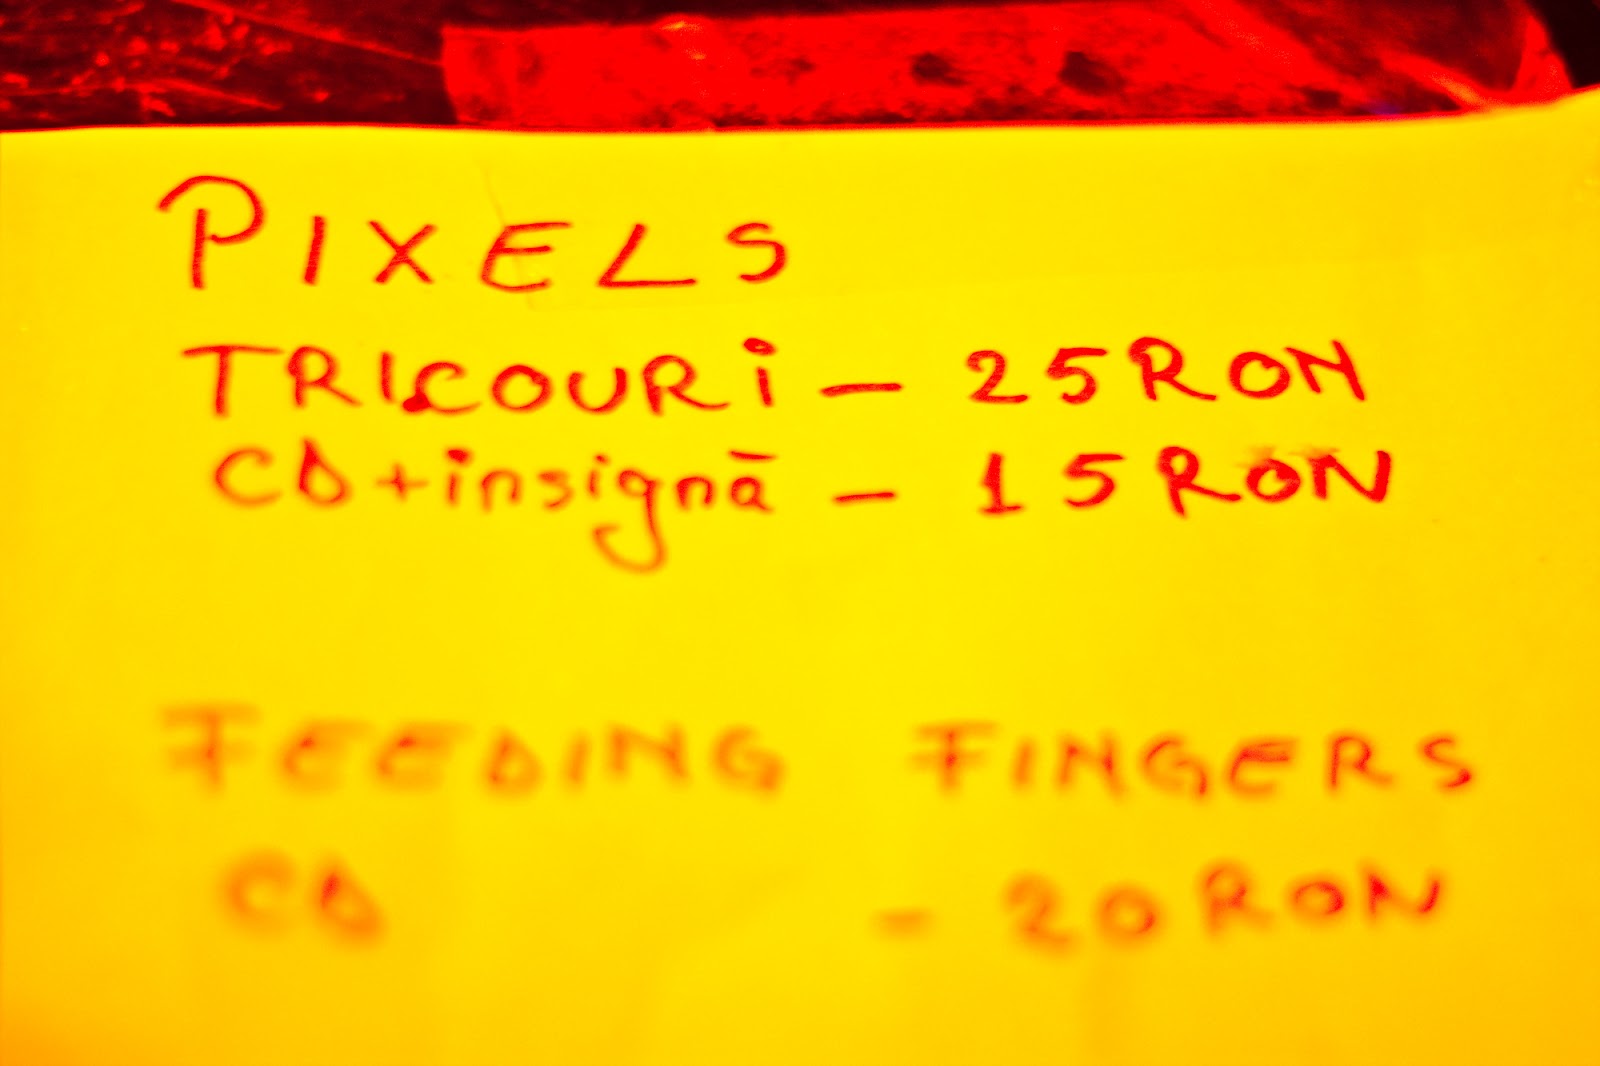 PIXELS
TRICOURi – 25 RON
CD + insignă – 15 RON
FEEDING FINGERS
CD – 20 RON